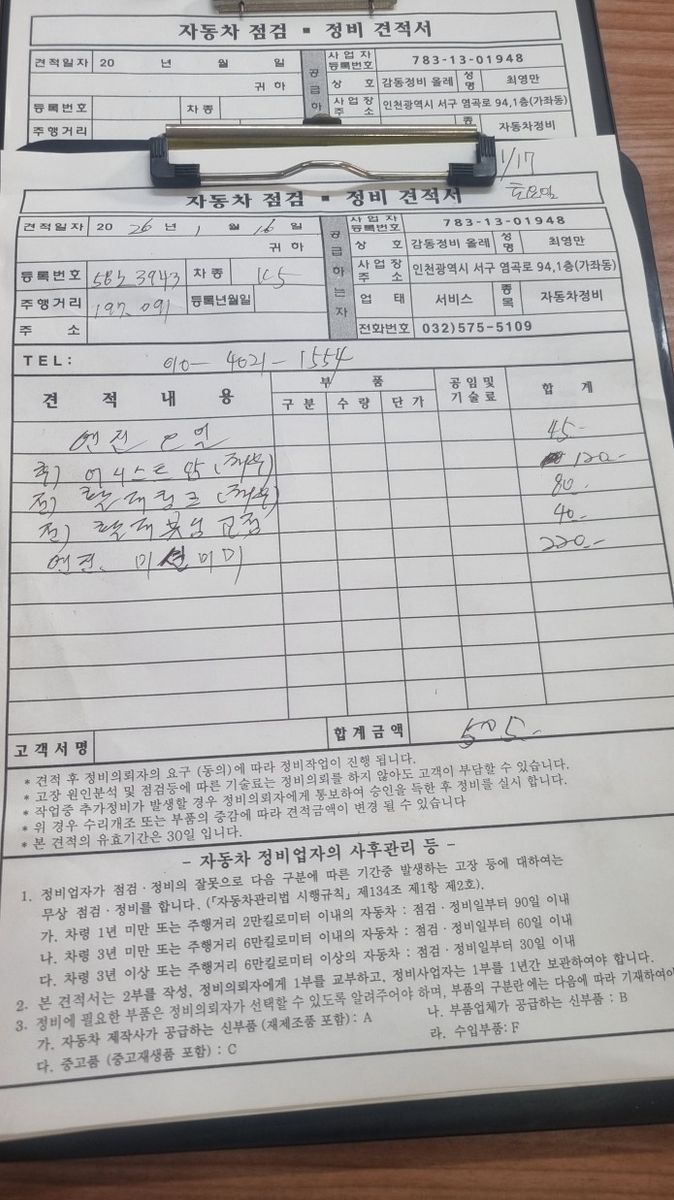 자동차 점검 ▪ 정비 견적서
견적일자 20 년 월 일
귀하
사업자등록번호 783-13-01948
상 호 감동정비 올레 성명 최영만
등록번호 차종
사업장주소 인천광역시 서구 염곡로 94,1층(가좌동)
주행거리
자동차정비
1/17
토요일
자동차 점검 ▪ 정비 견적서
견적일자 20 26 년 1 월 16 일
귀하
공급하는자
사업자등록번호 783-13-01948
상 호 감동정비 올레 성명 최영만
등록번호 58로 3943 차종 K5
사업장주소 인천광역시 서구 염곡로 94,1층(가좌동)
주행거리 197.091 등록년월일
업 태 서비스 종목 자동차정비
주 소
전화번호 032)575-5109
TEL: 010-4021-1554
견 적 내 용 부 품 공임및기술료 합 계
구분 수량 단가
엔진 오일 45-
후) 어시스트 암 (좌우) 120-
전) 활대링크 (좌우) 80-
전) 활대붓싱 교환 40-
엔진. 미션미미 220-
고객서명 합계금액 505-
* 견적 후 정비의뢰자의 요구 (동의)에 따라 정비작업이 진행 됩니다.
* 고장 원인분석 및 점검등에 따른 기술료는 정비의뢰를 하지 않아도 고객이 부담할 수 있습니다.
* 작업중 추가정비가 발생할 경우 정비의뢰자에게 통보하여 승인을 득한 후 정비를 실시 합니다.
* 위 경우 수리개조 또는 부품의 증감에 따라 견적금액이 변경 될 수 있습니다
* 본 견적의 유효기간은 30일 입니다.
- 자동차 정비업자의 사후관리 등 -
1. 정비업자가 점검·정비의 잘못으로 다음 구분에 따른 기간중 발생하는 고장 등에 대하여는
무상 점검·정비를 합니다. (「자동차관리법 시행규칙」 제134조 제1항 제2호).
가. 차령 1년 미만 또는 주행거리 2만킬로미터 이내의 자동차 : 점검·정비일부터 90일 이내
나. 차령 3년 미만 또는 주행거리 6만킬로미터 이내의 자동차 : 점검·정비일부터 60일 이내
다. 차령 3년 이상 또는 주행거리 6만킬로미터 이상의 자동차 : 점검·정비일부터 30일 이내
2. 본 견적서는 2부를 작성, 정비의뢰자에게 1부를 교부하고, 정비사업자는 1부를 1년간 보관하여야 합니다.
3. 정비에 필요한 부품은 정비의뢰자가 선택할 수 있도록 알려주어야 하며, 부품의 구분란에는 다음에 따라 기재하여야
가. 자동차 제작사가 공급하는 신부품 (재제조품 포함) : A 나. 부품업체가 공급하는 신부품 : B
다. 중고품 (중고재생품 포함) : C 라. 수입부품: F